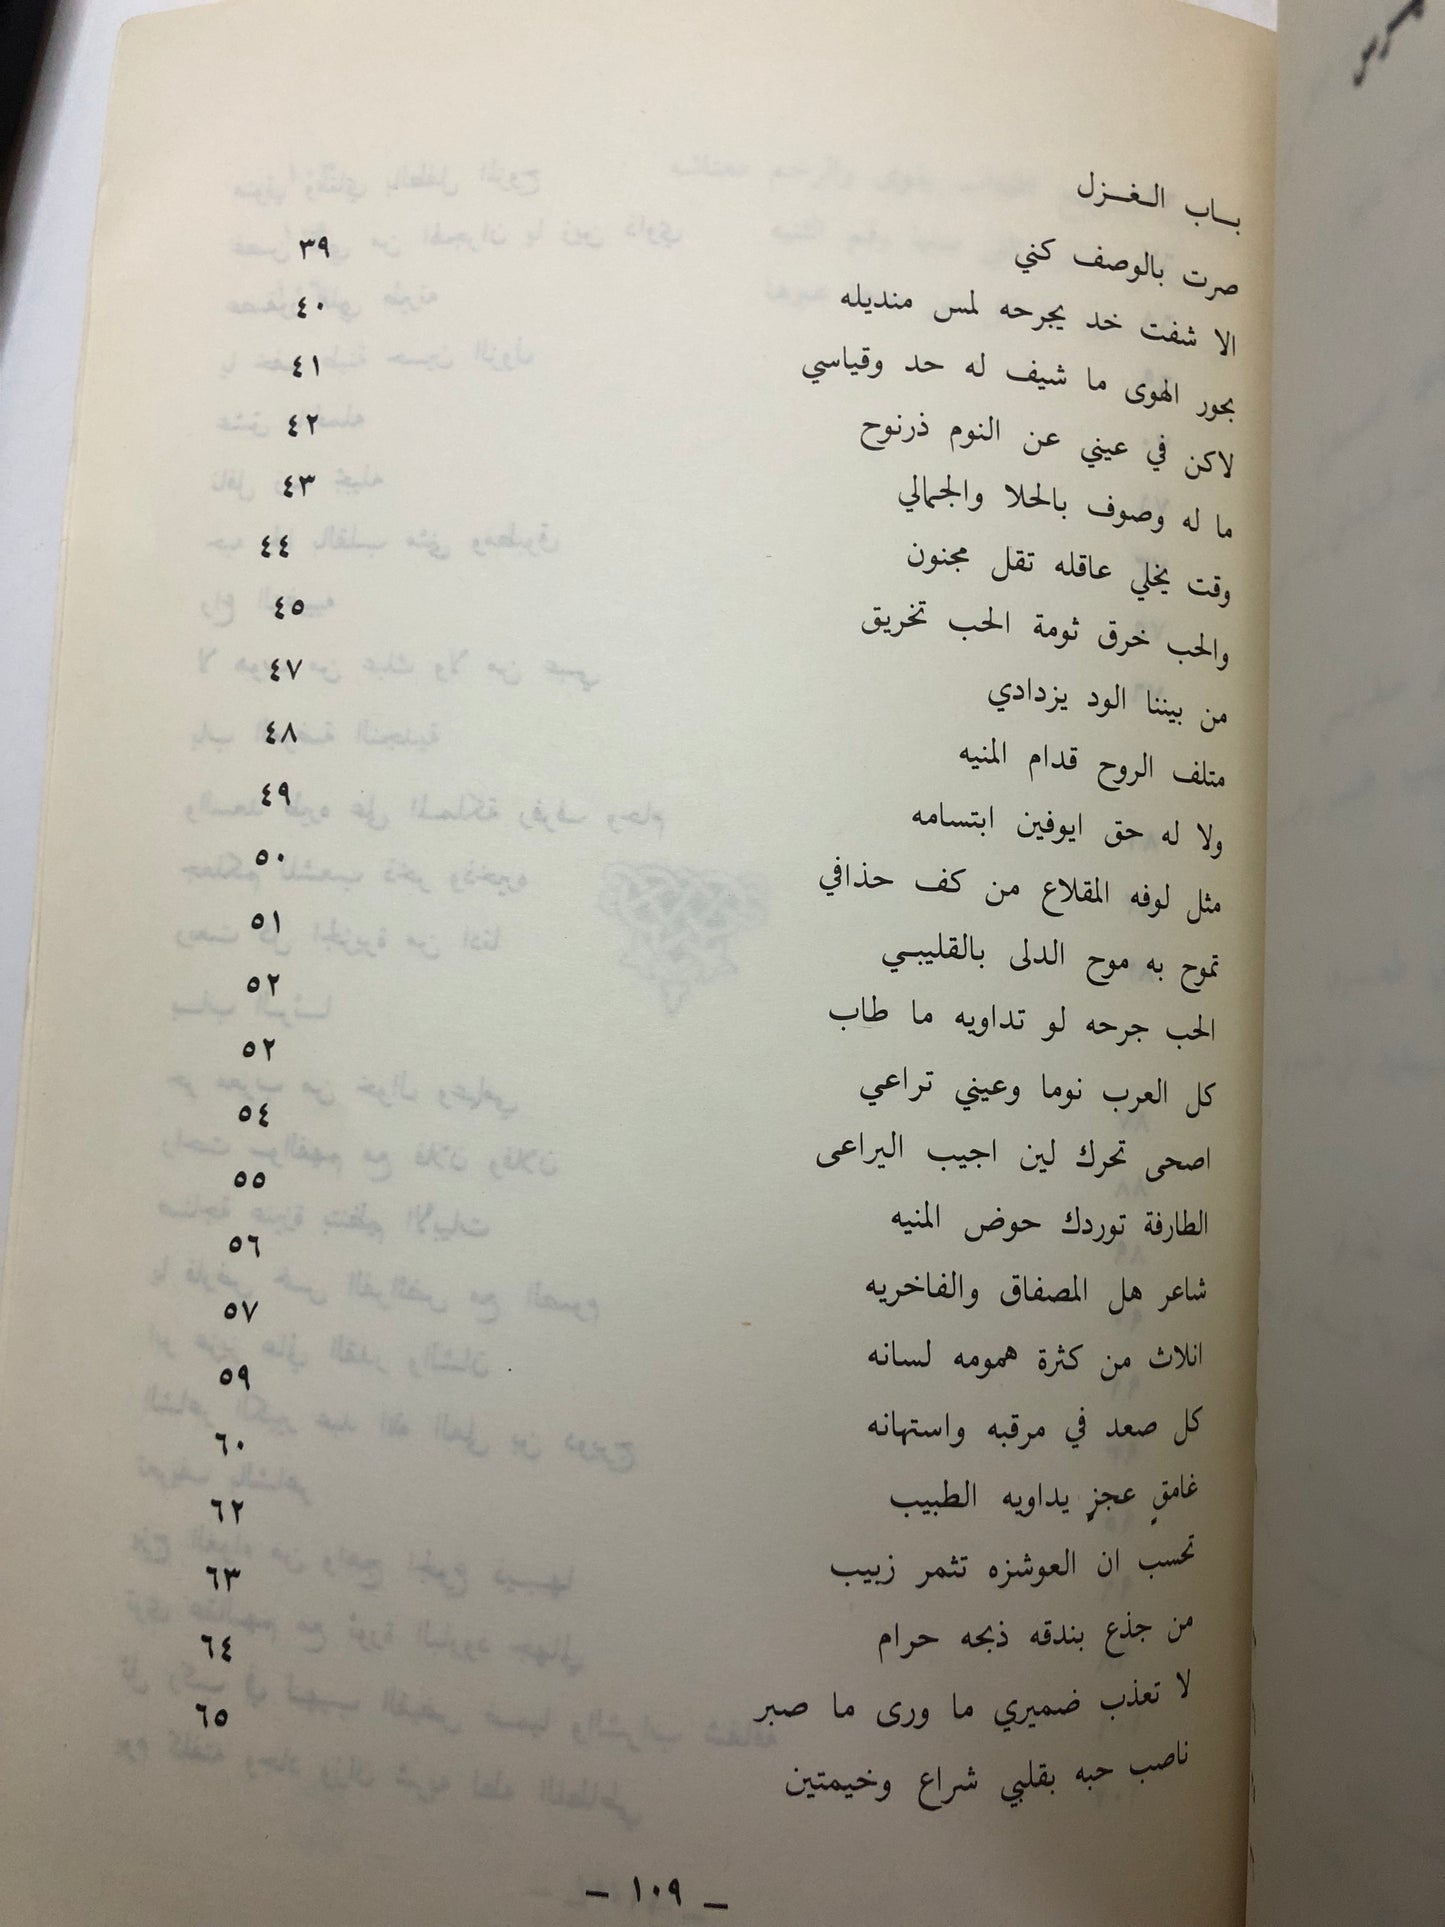 بـاب الـغـزل
صرت بالوصف كني ٣٩
الا شفت خد يجرحه لمس منديله ٤٠
بجور الهوى ما شيف له حد وقياسي ٤١
لاكن في عيني عن النوم ذرنوح ٤٢
ما له وصوف بالحلا والجمالي ٤٣
وقت يخلي عاقله تقل مجنون ٤٤
والحب خرق ثومة الحب تخريق ٤٥
من بيننا الود يزدادي ٤٧
متلف الروح قدام المنيه ٤٨
ولا له حق ايوفين ابتسامه ٤٩
مثل لوفه المقلاع من كف حذافي ٥٠
تموح به موح الدلى بالقليبـي ٥١
الحب جرحه لو تداويه ما طاب ٥٢
كل العرب نوما وعيني تراعي ٥٢
اصحى تحرك لين اجيب اليراعى ٥٤
الطارفة توردك حوض المنيه ٥٥
شاعر هل المصفاق والفاخريه ٥٦
انلاث من كثرة همومه لسانه ٥٧
كل صعد في مرقبه واستهانه ٥٩
غامقٍ عجزٍ يداويه الطبيب ٦٠
تحسب ان العوشزه تثمر زبيب ٦٢
من جذع بندقه ذبحه حرام ٦٣
لا تعذب ضميري ما ورى ما صبر ٦٤
ناصب حبه بقلبي شراع وخيمتين ٦٥
– ١٠٩ –